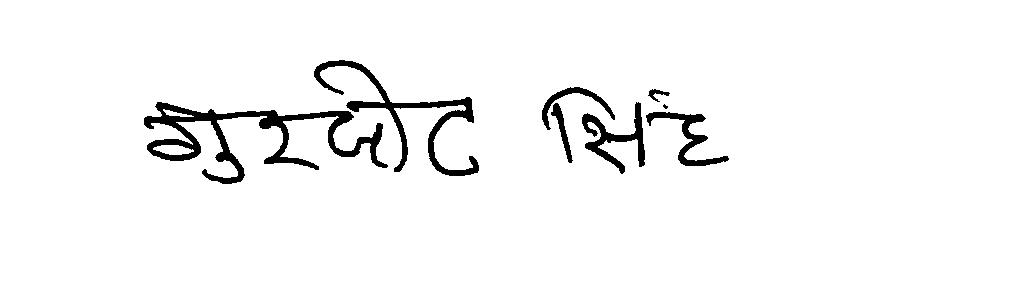 गुरजोट सिंह